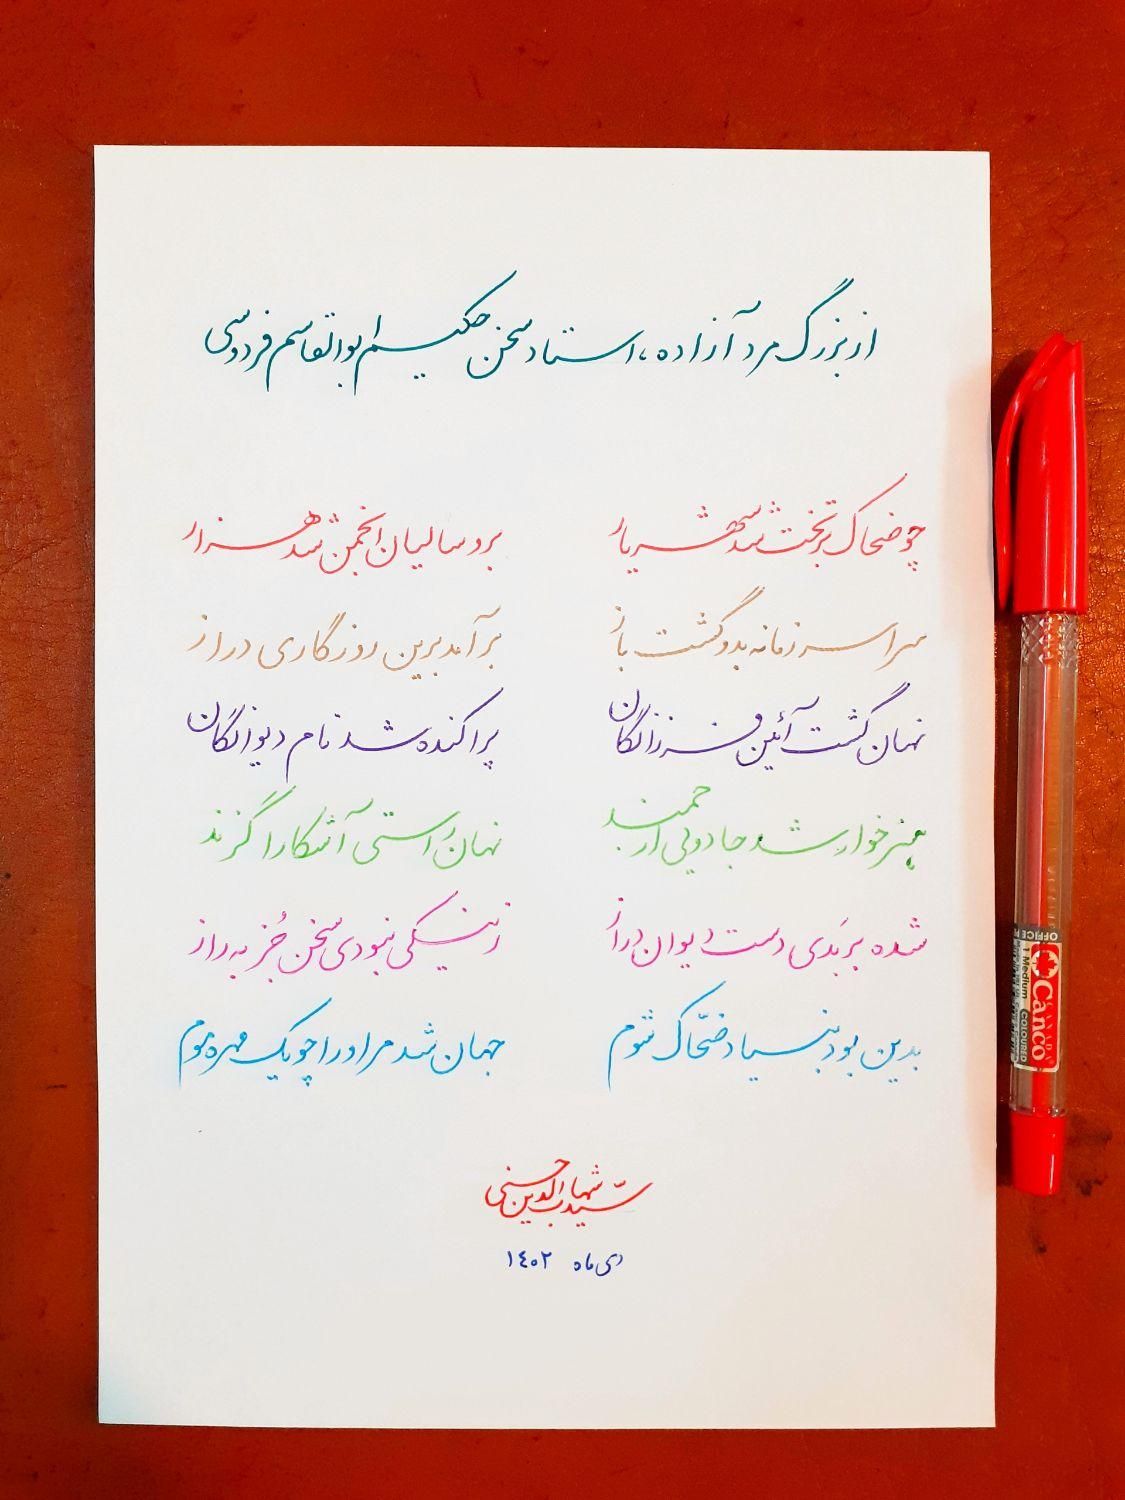 از بزرگ مرد آزاده، استاد سخن حکیم ابوالقاسم فردوسی
چو ضحاک بر تخت شد شهریار برو سالیان انجمن شد هزار
سراسر زمانه بدو گشت باز برآمد برین روزگاری دراز
نهان گشت آئین فرزانگان پراکنده شد نام دیوانگان
هنر خوار شد جادویی ارجمند نهان راستی آشکارا گزند
شده بر بَدی دست دیوان دراز ز نیکی نبودی سخن جُز به راز
بدین بود بنیاد ضحّاک شوم جهان شد مر او را چو یک مهره موم
سیّد شهاب الدین حسنی
دی ماه ۱۴۰۲
OFFICE
1 Medium COLOURED
Canco